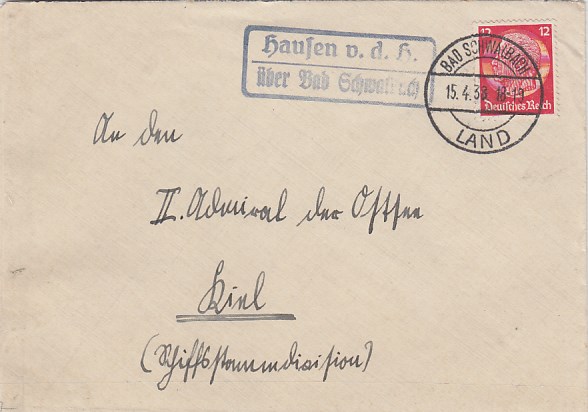 Hausen v. d. H.
über Bad Schwalbach
12 12
Deutsches Reich
BAD SCHWALBACH
15.4.38.
LAND
An den
II. Admiral der Ostsee
Kiel
(Schiffsstammdivision)